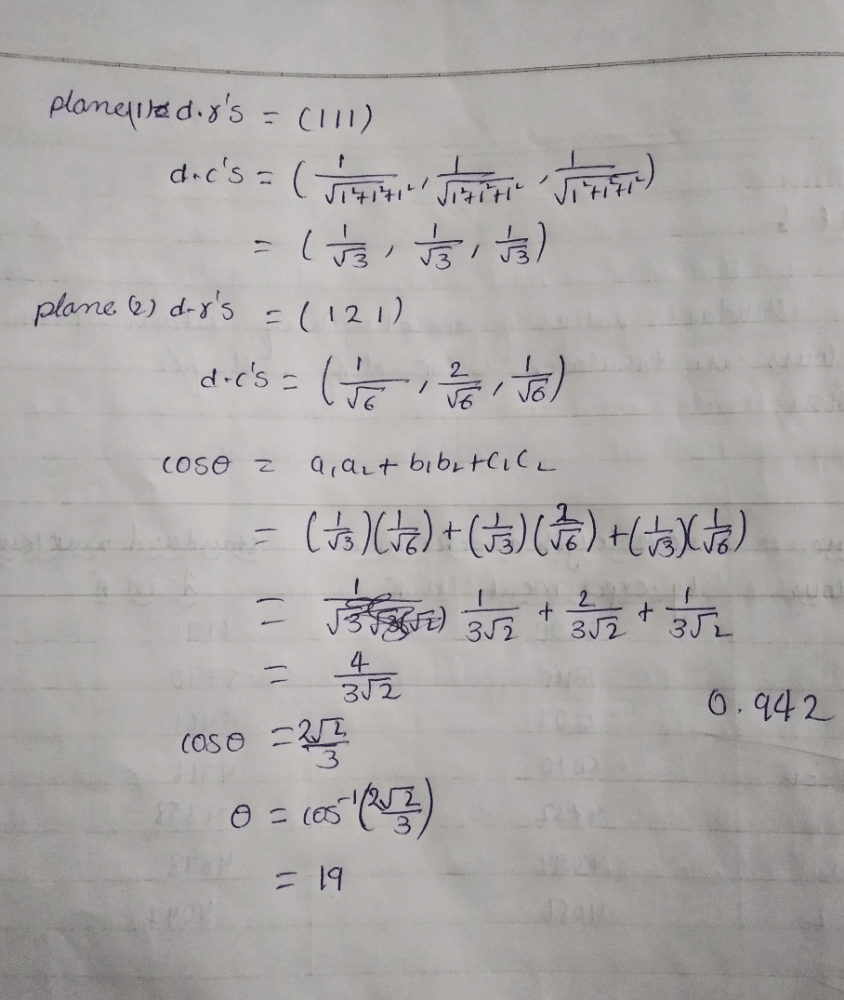 plane(1) d.r's = (111)
d.c's = (1/√1²+1²+1², 1/√1²+1²+1², 1/√1²+1²+1²)
= (1/√3, 1/√3, 1/√3)
plane (2) d-r's = (121)
d.c's = (1/√6, 2/√6, 1/√6)
cosθ = a₁a₂ + b₁b₂ + c₁c₂
= (1/√3)(1/√6) + (1/√3)(2/√6) + (1/√3)(1/√6)
= 1/3√2 + 2/3√2 + 1/3√2
= 4/3√2
0.942
cosθ = 2√2/3
θ = cos⁻¹(2√2/3)
= 19